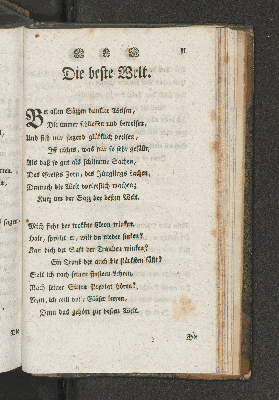 Die beste Welt.
Bei allen Sätzen dunkler Weisen,
Die immer schließen und beweisen,
Und sich nur siegend glücklich preisen,
Ist nichts, was mir so sehr gefällt,
Als daß so gut als schlimme Sachen,
Des Greises Zorn, des Jünglings Lachen,
Dennoch die Welt vortreflich machen;
Kurz um der Satz der besten Welt.
Mich sieht der trockne winken.
Halt, spricht er, willt du nieder sinken?
Kan dich der Saft der Trauben winken?
Ein Trank der auch die stärksten fällt?
Soll ich nach seiner finstern Lehren,
Nach seiner Sitten Predigt hören?
Nein, ich will die Gläser leeren,
Denn das gehört zur besten Welt.